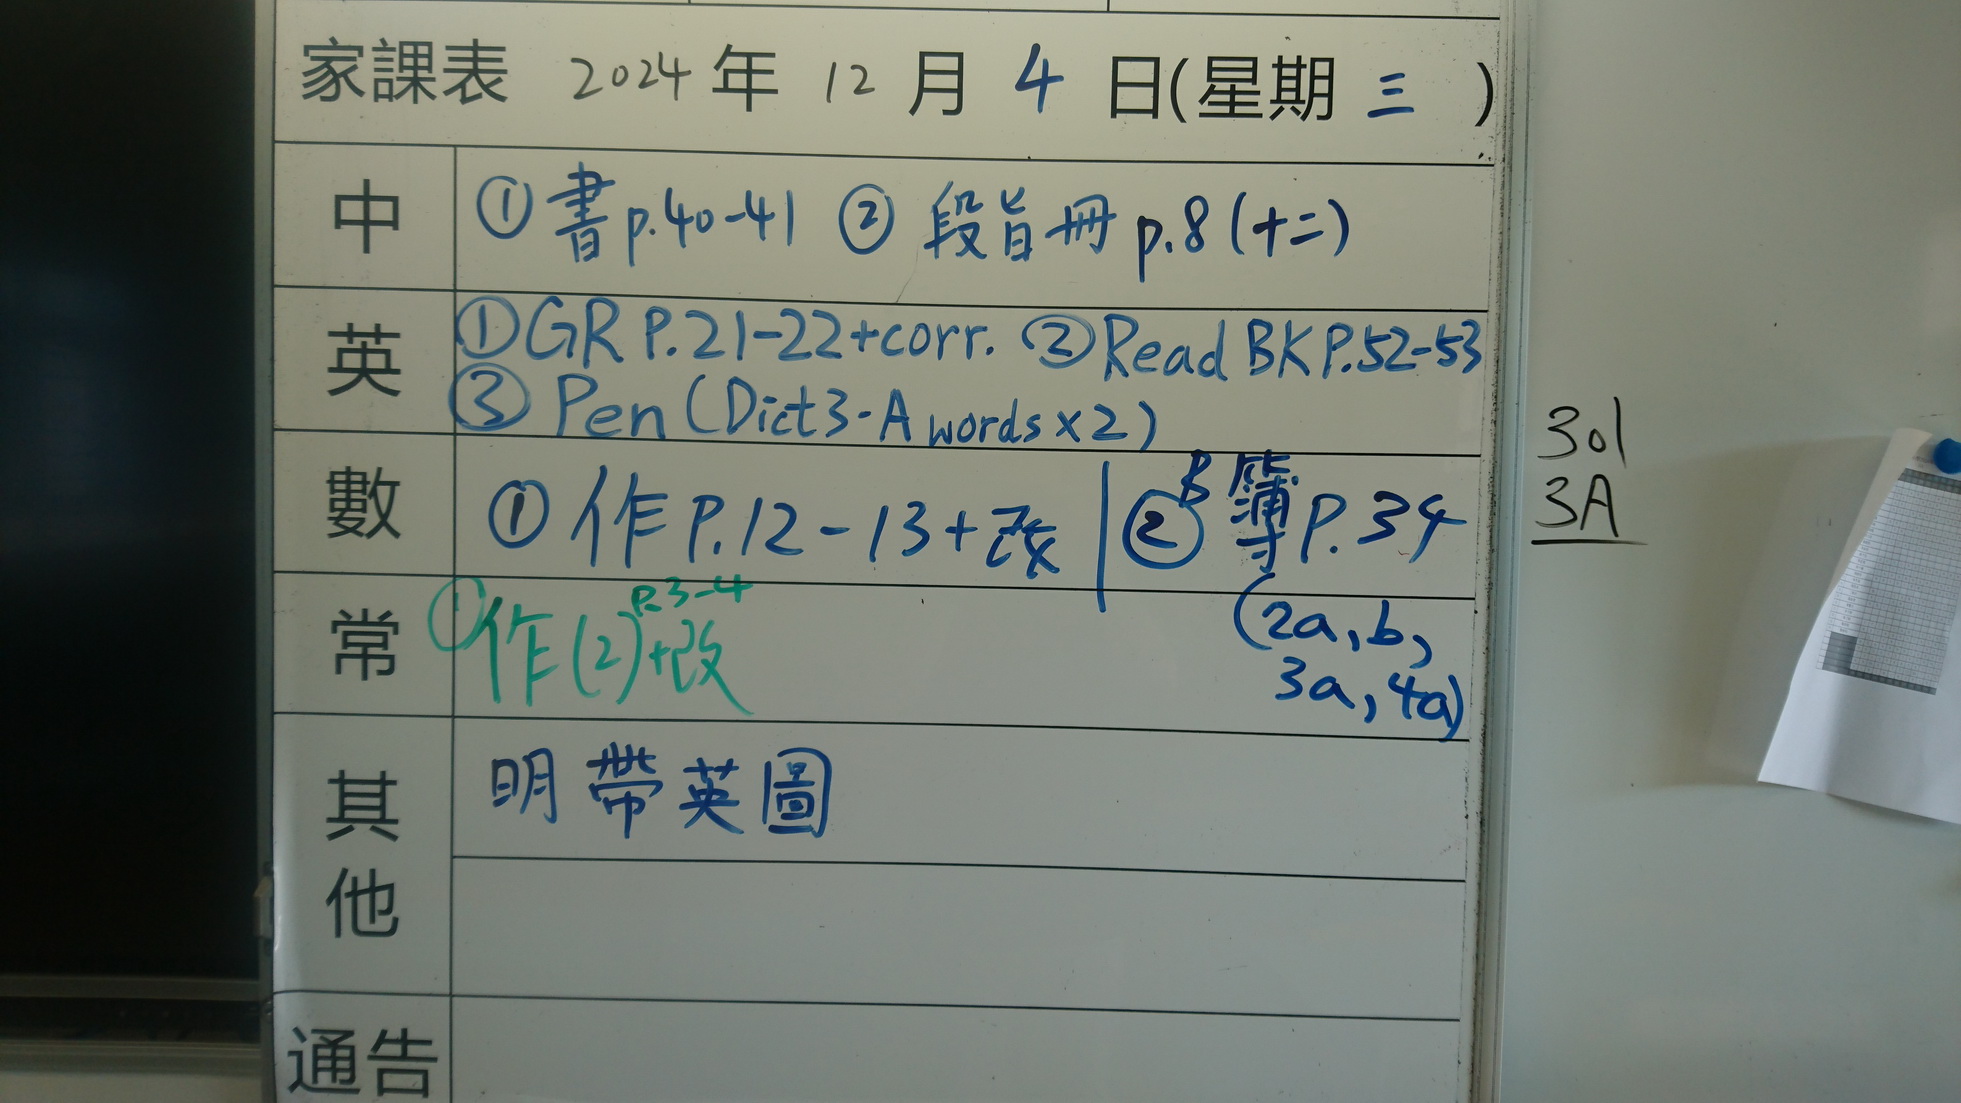 家課表 2024 年 12 月 4 日(星期 三 )
中 ① 書 p.40-41 ② 段旨冊 p.8 (十二)
英 ① GR P.21-22+corr. ② Read BK P.52-53
③ Pen (Dict3-A words x2)
數 ① 作 P.12-13+改 ② B簿 P.34
(2a, b,
3a, 4a)
常 ① 作(2) P.3-4 +改
其他 明帶英圖
通告
301
3A